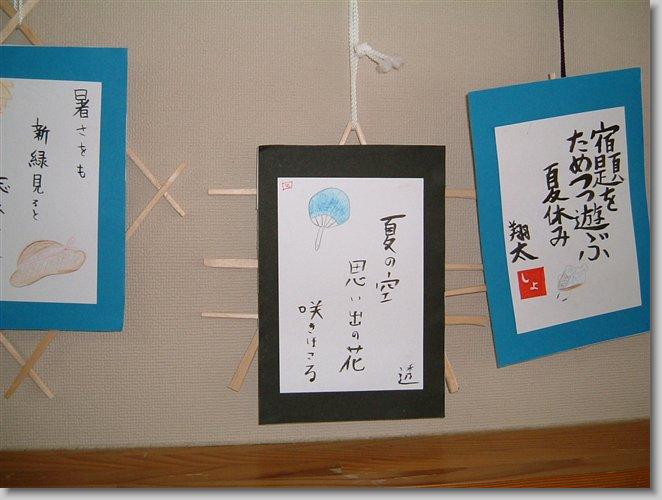 暑さをも
新緑見ると
夏の空
思い出の花
咲きほこる
透
宿題を
ためつつ遊ぶ
夏休み
翔太
しょ